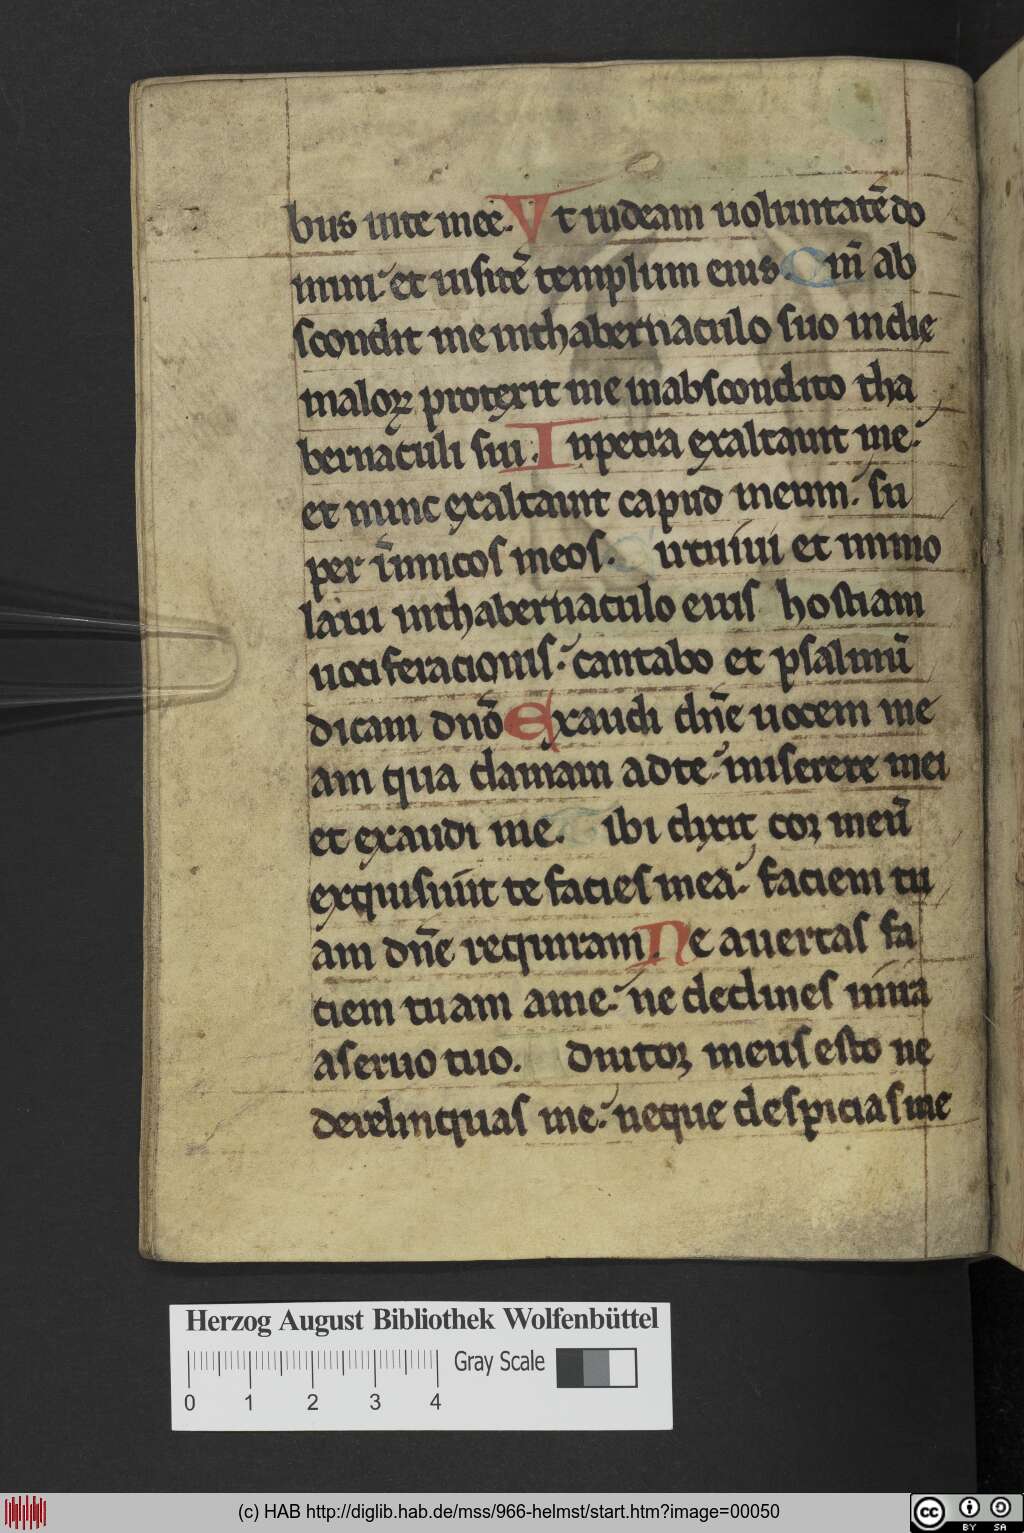 bus uite mee. Vt uideam uoluntatē do
mini et uisitē templum eius. Cm̄ ab
scondit me inthabernaculo suo indie
maloꝝ protexit me inabscondito tha
bernaculi sui. Inpetra exaltauit me.
et nunc exaltauit capud meum. su
per īimicos meos. Circuiui et immo
laui inthabernaculo eius hostiam
uociferacionis. cantabo et psalmū
dicam dnō Exaudi dn̄e uocem me
am qua clamam adte miserere mei
et exaudi me. Tibi dixit cor meū
exquisiuit te facies mea. faciem tu
am dn̄e requiram. Ne auertas fa
ciem tuam ame. ne declines inira
aseruo tuo. diutor meus esto ne
derelinquas me. neque despicias me
Herzog August Bibliothek Wolfenbüttel
Gray Scale
0 1 2 3 4
(c) HAB http://diglib.hab.de/mss/966-helmst/start.htm?image=00050
cc BY SA